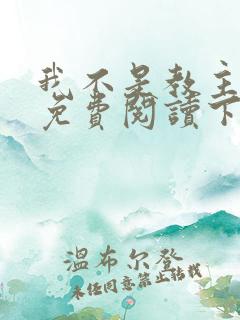 我不是教主
免費閱讀下
溫布尔登
未经同意禁止转载